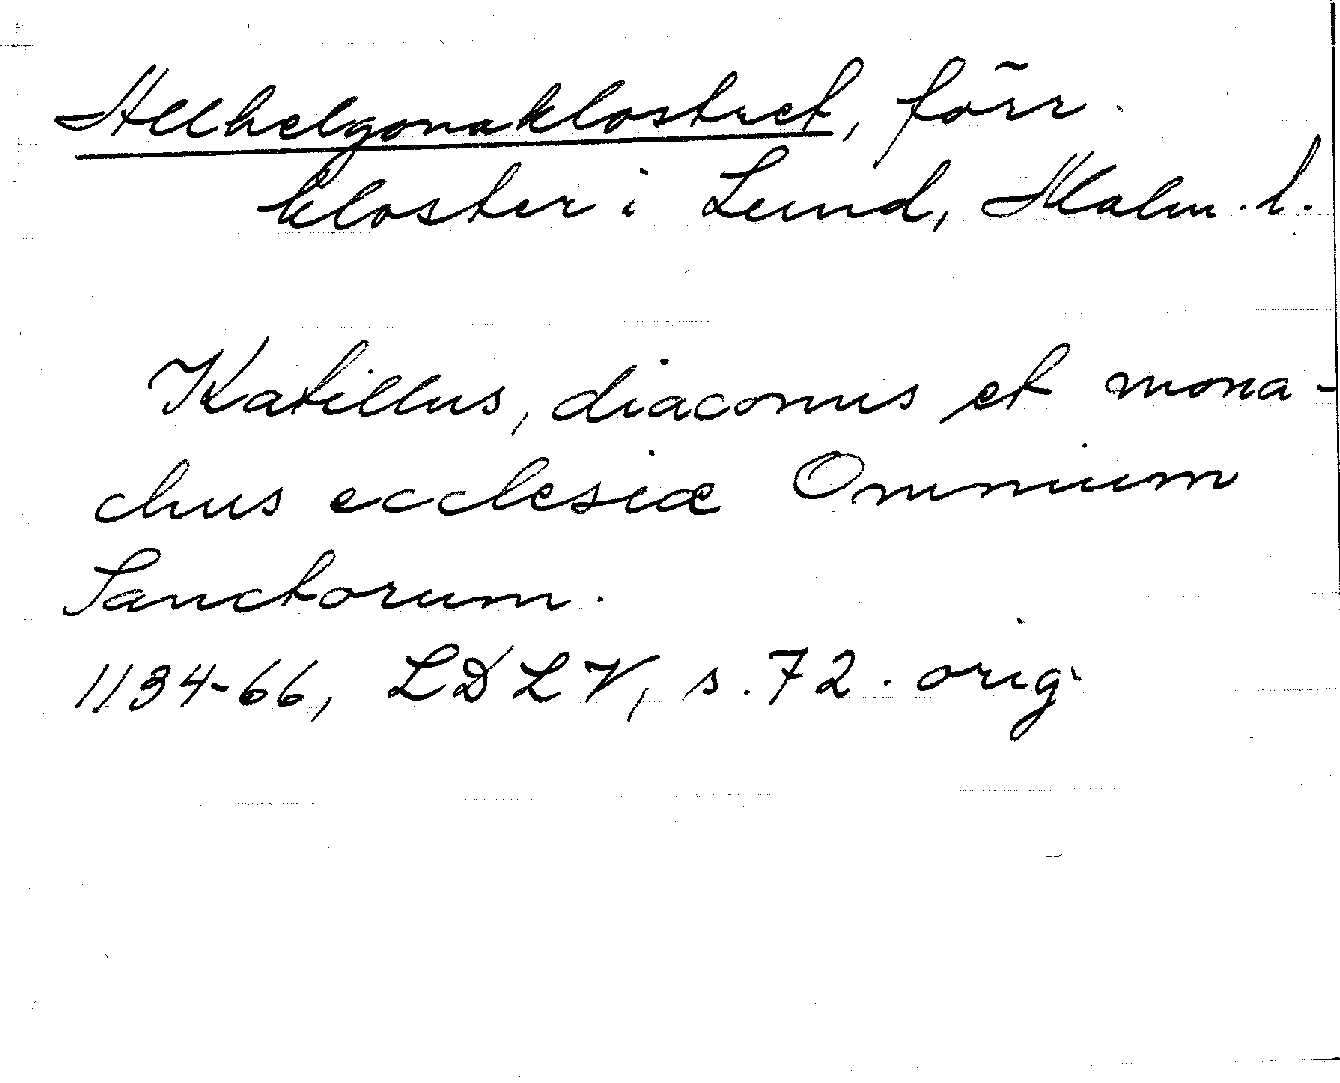 Allhelgonaklostret, förr
kloster i Lund, Malm. l.
Katillus, diaconus et mona-
chus ecclesiæ Omnium
Sanctorum.
1134-66, LDLV, s. 72. orig.